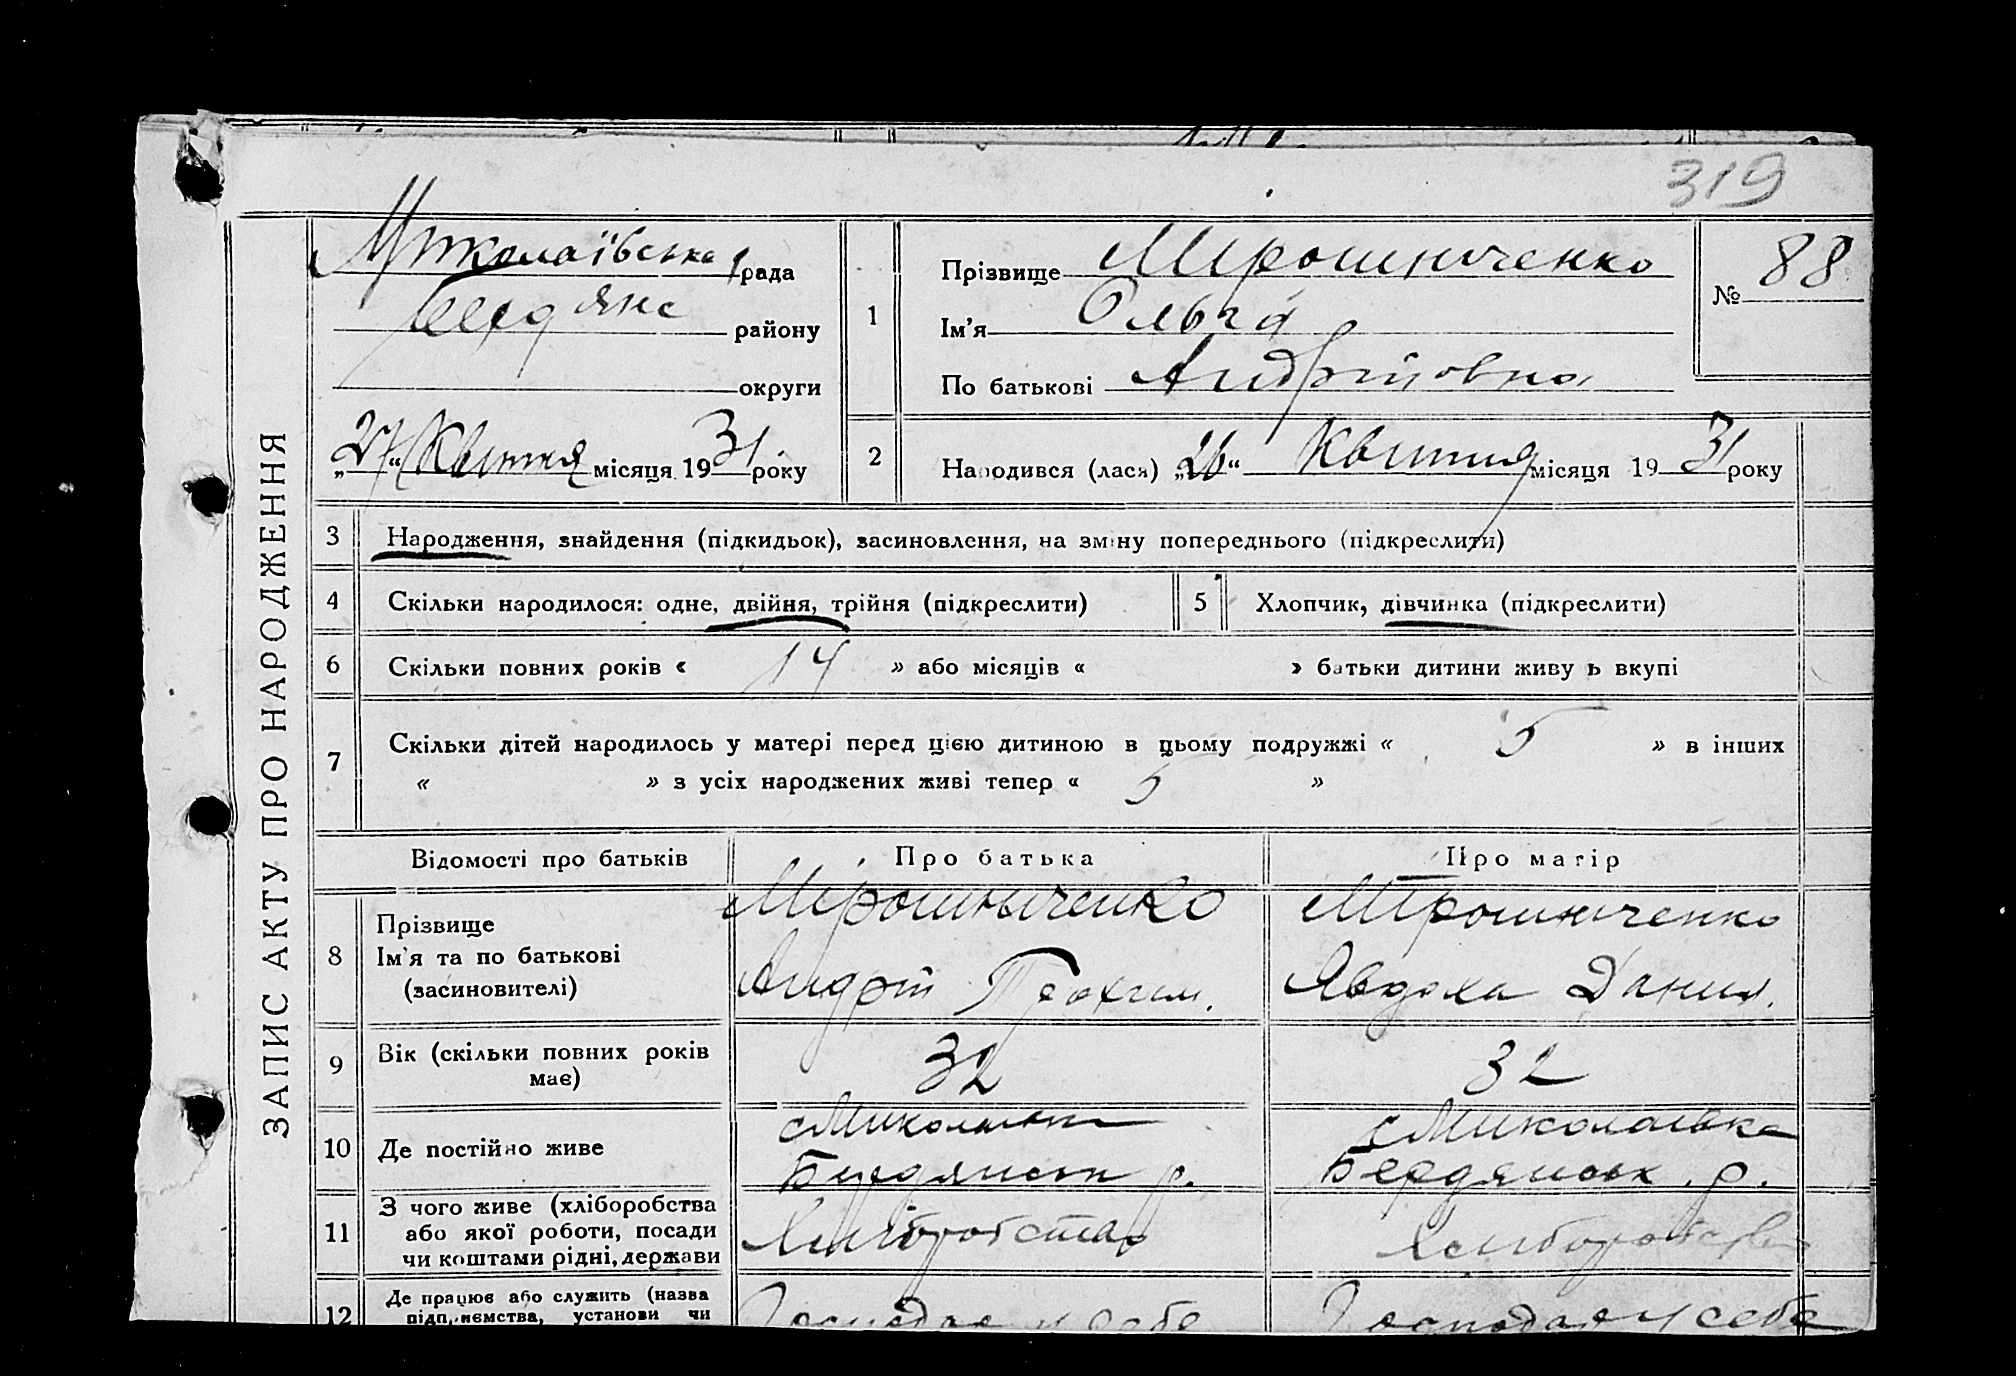 319
ЗАПИС АКТУ ПРО НАРОДЖЕННЯ
Миколаївська рада
Бердянс району
округи
„27“ Квітня місяця 1931 року
1
Прізвище Мірошниченко
Ім’я Ольга
По батькові Андріївна
№ 88
2
Народився (лася) „26“ Квітня місяця 1931 року
3 Народження, знайдення (підкидьок), засиновлення, на зміну попереднього (підкреслити)
4 Скільки народилося: одне, двійня, трійня (підкреслити)
5 Хлопчик, дівчинка (підкреслити)
6 Скільки повних років « 14 » або місяців « » батьки дитини живуть вкупі
7 Скільки дітей народилось у матері перед цією дитиною в цьому подружжі « 5 » в інших
« » з усіх народжених живі тепер « 5 »
Відомості про батьків
Про батька
Про матір
8
Прізвище
Ім’я та по батькові
(засиновителі)
Мірошниченко
Андрій
Мірошниченко
Явдоха Данил.
9 Вік (скільки повних років
має)
32
32
10 Де постійно живе
Бердянськ р.
с Миколаївка
Бердянськ. р.
11
З чого живе (хліборобства
або якої роботи, посади
чи коштами рідні, держави
Хліборобства
Хліборобства
12
Де працює або служить (назва
підприємства, установи чи
Господар у себе
Господар у себе